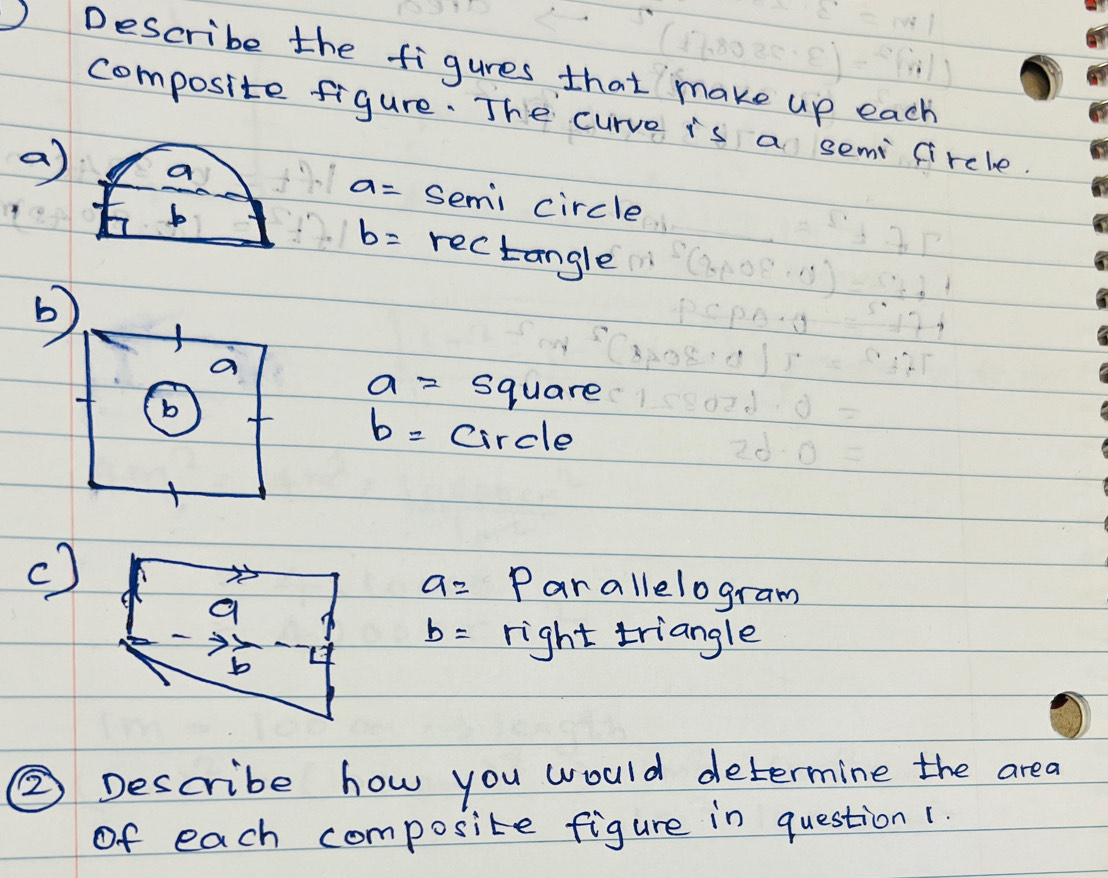 Describe the figures that make up each
composite figure. The curve is a semi circle.
a) a b a = semi circle
b = rectangle
b) a b a = square
b = circle
c) a b a = Parallelogram
b = right triangle
② Describe how you would determine the area
of each composite figure in question 1.